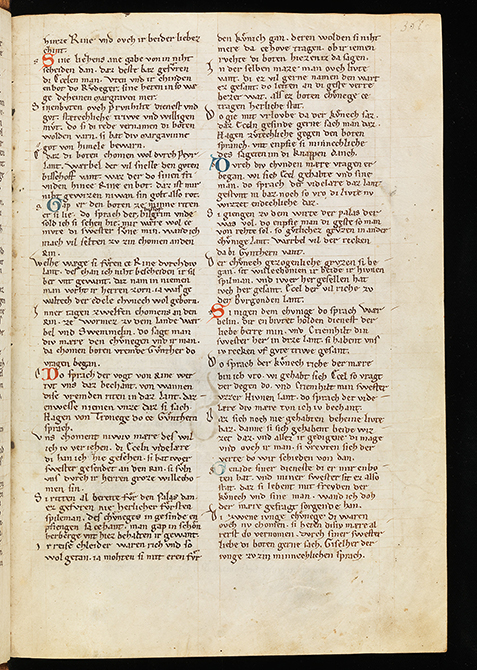 hinze Rine vnd ovch ir beider lieber
chint.
Sine liezens ane gabe von in niht
scheiden dan. daz beste
di Eceln man. vten vnd ir chinden
enbot do Rvdeger. sine heten in so wæ
ge deheinen margraven mer.
Sin enbvten ovch Prvnhilte dienest vnd
gvt. stætechliche triwe vnd willigen
mvt. do si di rede vernamen di boten
wolden varn. si bat div margravinne
got von himele bewarn.
E daz di boten chomen wol dvrch Peyr
lant. Wærbel der vil snelle den gvten
bisscof vant. waz der do sinen frí
vnden hinze Rine enbot. daz ist mir
niht gewizzen. niwan sin golt also rot
Gap er den boten ze minne riten
er si lie. do sprach der bisscof Pilgrim
solt ich si sehen hie. mir wære wol ze
mvte di swester sune min. wand ich
mach vil selten zv zin chomen an den
Rin.
Welhe wege si fvren ze Rine dvrch div
lant. des chan ich niht bescheiden. ir sil
ber vnt gewant. daz nam in niemen
man vorht ir herren zorn. ia was ge
waltech der edele chvnech wol geborn.
Inner tagen zwelfen chomens an den
Rin. ze Wormez zv dem lande Wær
bel vnd Swemmelin. do sagt man
div mære den chvnegen vnd ir man.
da chomen boten vremde Gvnther do
vragen began.
Do sprach der vogt von Rine wer
tvt vns daz bechant. von wannen
dise vremden riten in daz lant. daz
enwesse niemen vnze daz si sach
Hagen von Tronege do ze Gvnthern
sprach.
Vns choment niwiv mære des wil
ich iv veriehen. di Eceln videlære
di han ich hie gesehen. si hat iwer
swester gesendet an den Rin. si svln
vns dvrch ir herren groze willecho
men sin.
Si riten al bereite fvr den palas dan.
ez gefvren nie herlicher fvrsten
spileman. des chvneges in gesinde en
pfiengen sa zehant. man gap in schon
herberge vnt hiez behalten ir gewant.
Ir reise chleider waren rich vnd so
wol getan. ia mohten si mit eren fvr
den kvnich gan. deren wolden si niht
mere da ze hove tragen. ob ir iemen
rvchte di boten hiezen da sagen.
In der selben maze man ovch livte
vant. di ez vil gerne namen den wart
ez gesant. do leiten an di geste verre
bezzer wat. als ez boten chvnege ze
tragen herliche stat.
Do gie mit vrlovbe da der kvnich saz.
daz Eceln gesinde gerne sach man daz.
Hagen zvhtechliche gegen den boten
spranch. vnt enpfie si minnechliche
des sageten im di knappen danch.
Dvrch div chvnden mære vragen er
began. wi sich Ecel gehabte vnd sine
man. do sprach der videlære daz lant
gestvnt nie baz noch so vro di livte nv
wizzet endechliche daz.
Si giengen zv dem wirte der palas der
was vol. do enpfie man di geste so man
von rehte sol. so gvtlichez grvzen in ander
chvnige lant. Wærbel vil der recken
da bi Gvnthern vant.
Der chvnech gezogenliche grvzen si be
gan. sit willechomen ir beide ir Hvnen
spilman. vnd iwer her gesellen hat
vch her gesant. Ecel der vil riche zv
der Byrgonden lant.
Si nigen dem chvnige do sprach Wær
belin. dir enbivtet holden dienest der
liebe herre min. vnd Criemhilt din
swester her in dize lant. si habent vns
iv recken vf gvte triwe gesant.
Do sprach der kvnech riche der mære
bin ich vro. wi gehabt sich Ecel so vragt
der degen do. vnd Criemhilt min swester
verrer Hivnen lant. do sprach der vide
lære div mære tvn ich iv bechant.
Daz sich noch nie gehabten deheine livte
baz. danne si sich gehabent beide wiz
zet daz. vnd allez ir gedigene di mage
vnd ovch ir man. si vrevten sich der
verte do wir schieden von dan.
Genade siner dieneste di er mir enbo
ten hat. vnd miner swester sit ez also
stat. daz si lebent mit frevden der
kvnech vnd sine man. wand ich doch
der mære gefraget sorgende han.
Di zwene ivnge chvnege di waren
ovch nv chomen. si heten disiv mære al
rerst do vernomen. dvrch siner swester
liebe di boten gerne sach. Giselher der
ivnge zv zin minnechlichen sprach.